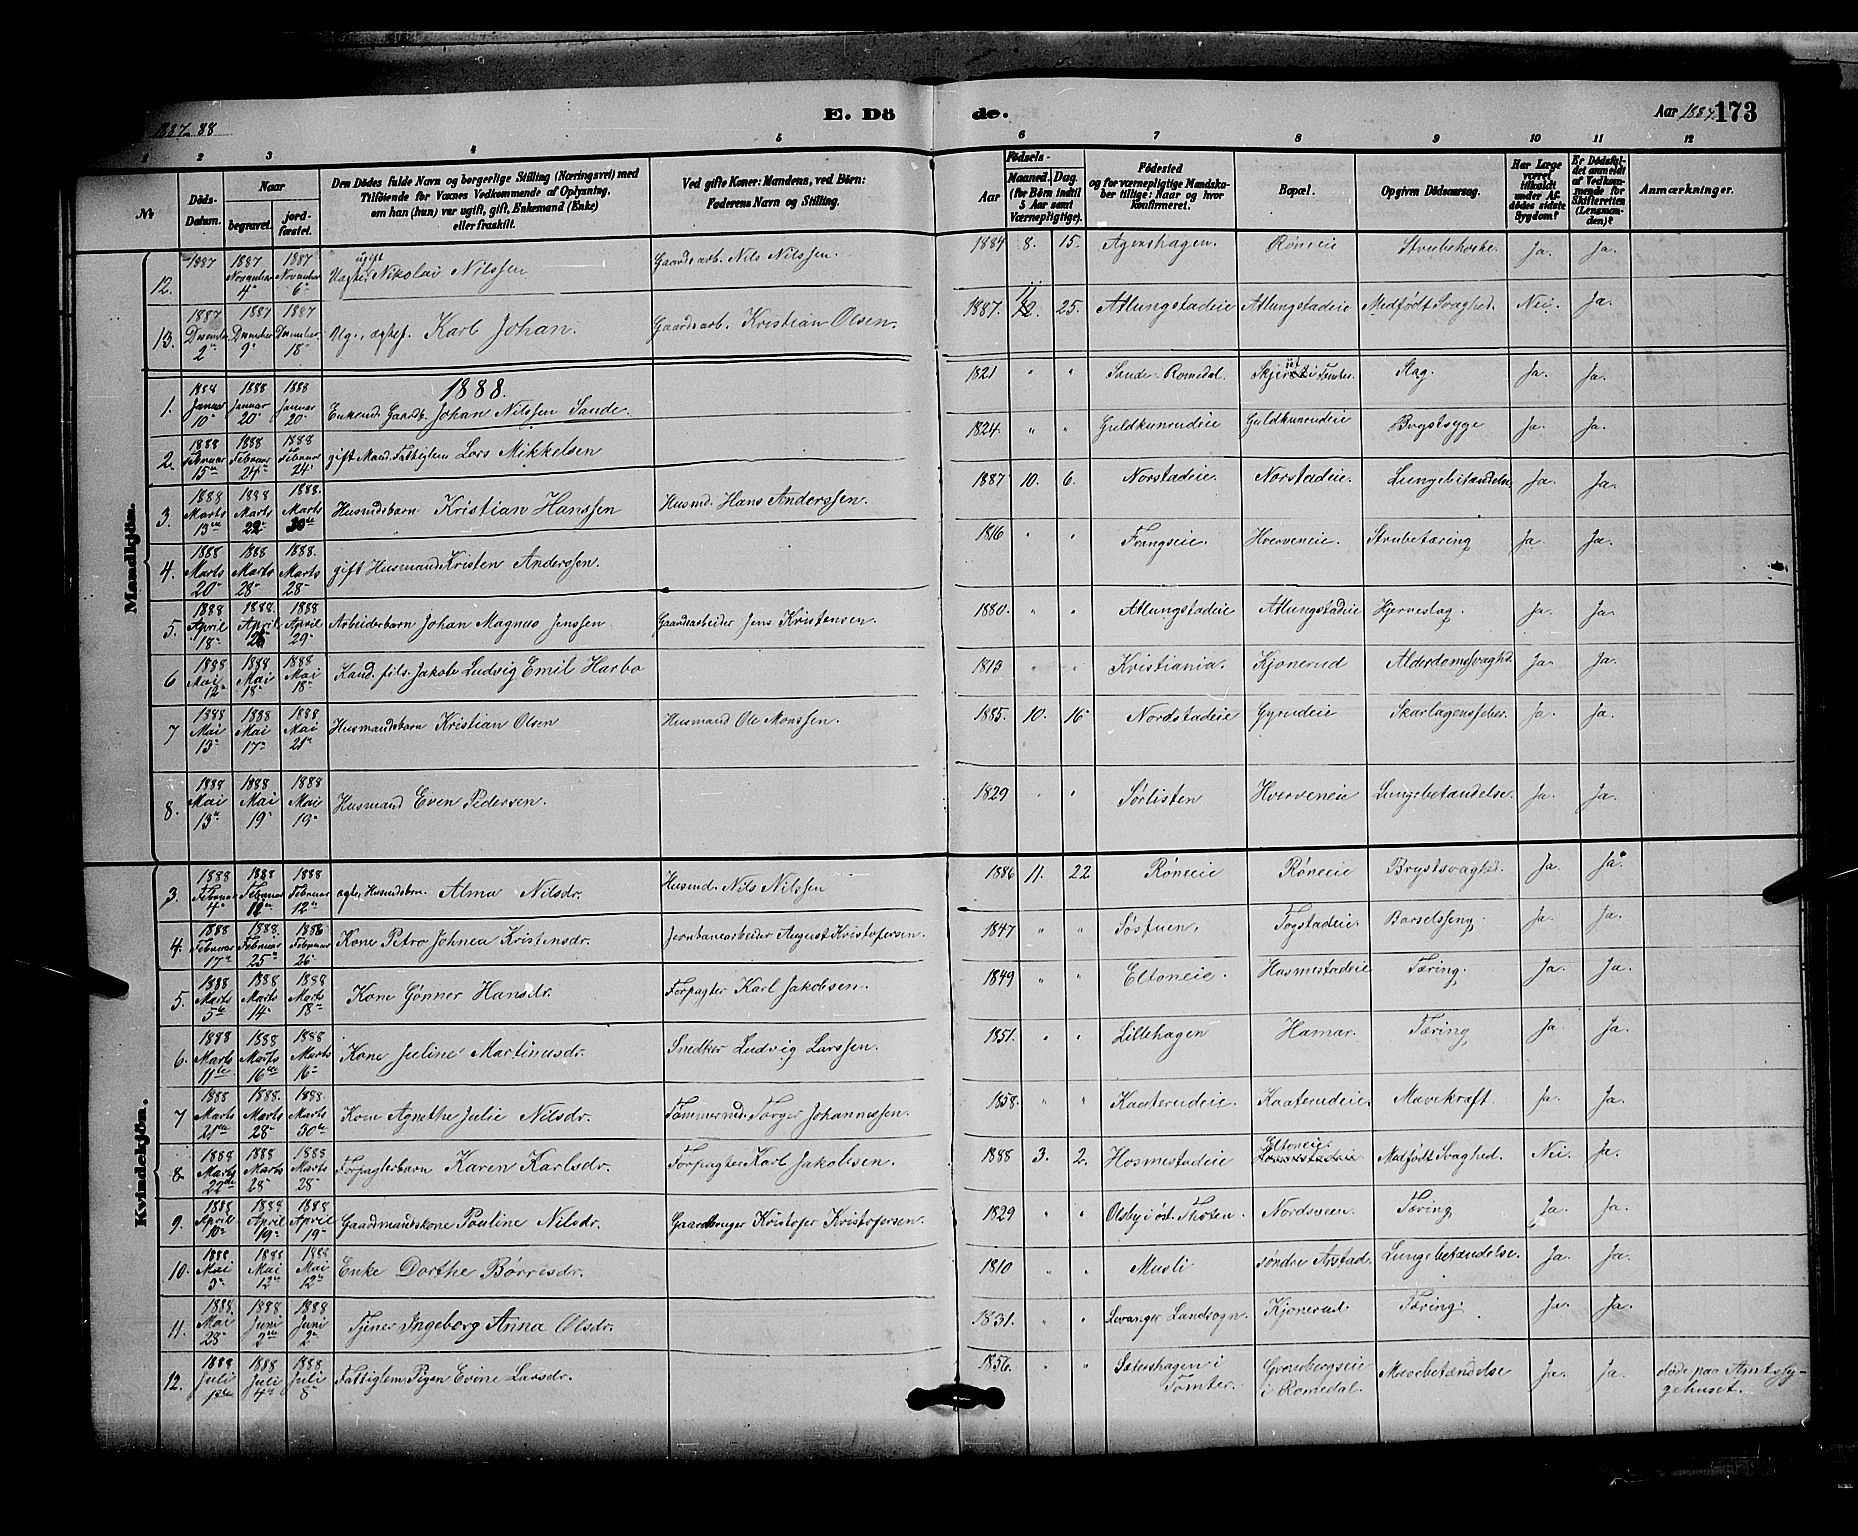 1887-88
E. Dö
de.
Aar 1887. 173
1 2 3 4 5 6 7 8 9 10 11 12
№
Döds-
Datum.
Naar
begravet.
jord-
fæstet.
Den Dödes fulde Navn og borgerlige Stilling (Næringsvei) med
Tilföiende for Voxnes Vedkommende af Oplysning,
om han (hun) var ugift, gift, Enkemand (Enke)
eller fraskilt.
Ved gifte Koner: Mandens, ved Börn:
Faderens Navn og Stilling.
Födsels-
Aar
Maaned. Dag.
(for Börn indtil
5 Aar samt
Værnepligtige).
Födested
og for værnepligtige Mandska-
ber tillige: Naar og hvor
konfirmeret.
Bopæl.
Opgiven Dödsaarsag.
Har Læge
været
tilkaldt
under Af-
dödes sidste
Sygdom?
Er Dödsfal-
det anmeldt
af Vedkom-
mende for
Skifteretten
(Lensman-
den)?
Anmærkninger.
Mandkjön.
12. 1887 1887 November 4 1887 November 6 ugift Nikolai Nilssen Gaardsarb. Nils Nilssen. 1884 8. 15. Agershagen. Röneeie Strubehoste Ja. Ja.
13. 1887 December 2 1887 December 9 1887 December 18 Ug., ægtef. Karl Johan. Gaardsarb. Kristian Olsen. 1887. 11 25. Atlungstadeie Atlungstadeie Medfødt Svaghed. Nei. Ja.
1888.
1. 1888 Januar 10 1888 Januar 20 1888 Januar 20 Enkemd. Gaardb. Johan Nilssen Sande. 1821 " " Sande i Romedal. Tomter. Slag. Ja. Ja.
2. 1888 Februar 15 1888 Februar 24 1888 Februar 24 gift Mand. Fattiglem Lars Mikkelsen 1824. " " Guldkunrudeie Guldkunrudeie Brystsyge Ja. Ja.
3. 1888 Marts 13 1888 Marts 22 1888. Marts 30 Husmdsbarn Kristian Hanssen Husmd. Hans Anderssen. 1887 10. 6. Norstadeie. Norstadeie. Lungebetændelse Ja. Ja.
4. 1888 Marts 20 1888 Marts 28 1888. Marts 28 gift Husmand Kristen Anderssen. 1816 " " Frangseie. Hverveneie. Strubetæring Ja. Ja.
5. 1888 April 18 1888. April 26 1888 April 29 Arbeiderbarn Johan Magnus Jenssen. Gaardsarbeider Jens Kristensen. 1880. " " Atlungstadeie Atlungstadeie Hjerneslag. Ja. Ja.
6 1888 Mai 12 1888 Mai 18 1888 Mai 18 Kand. fils. Jakob Ludvig Emil Harbo 1813 " " Kristiania. Kjonerud Alderdomssvaghd. Ja. Ja.
7 1888 Mai 13 1888 Mai 17 1888 Mai 21 Husmandsbarn Kristian Olsen Husmand Ole Monssen. 1885. 10. 16 Nordstadeie Gyrudeie Skarlagensfeber. Ja. Ja.
8. 1888 Mai 13 1888 Mai 19 1888 Mai 19 Husmand Even Pedersen. 1829 " " Sørlisten Hverveneie Lungebetændelse. Ja. Ja.
Kvindekjön.
3. 1888 Februar 4 1888 Februar 12 1888 Februar 12 ægte, Husmdsbarn. Alma Nilsdr. Husmd. Nils Nilssen 1886 11. 22 Röneeie Röneeie Brystsvaghed. Ja. Ja.
4. 1888 Februar 17 1888. Februar 25 1888 Februar 26 Kone Petra Johnea Kristensdr. Jernbanearbeider August Kristofersen. 1847 " " Søstuen, Fogstadeie. Barselseng. Ja. Ja.
5. 1888 Marts 5 1888 Marts 14 1888 Marts 18 Kone Gönner Hansdr. Forpagter Karl Jakobsen. 1849 " " Eltoneie. Hosmestadeie Tæring. Ja. Ja.
6. 1888 Marts 11 1888 Marts 16 1888 Marts 16 Kone Juline Martinusdr. Snedker Ludvig Larssen. 1851. " " Lillehagen Hamar. Tæring. Ja. Ja.
7 1888 Marts 21 1888. Marts 28 1888. Marts 30 Kone Agnethe Julie Nilsdr. Tømmermd. Torger Johannessen. 1858. " " Kaaterudeie. Kaaterudeie. Mavekræft. Ja. Ja.
8 1888 Marts 22 1888 Marts 28 1888 Marts 28 Forpagterbarn Karen Karlsdr. Forpagter Karl Jakobsen. 1888 3. 2. Hosmestadeie Eltoneie. Medfødt Svaghed. Nei. Ja.
9. 1888 April 10 1888 April 19 1888 April 19 Gaardmandskone Pauline Nilsdr. Gaardbruger Kristofer Kristofersen. 1829 " " Olsby i øst. Thoten. Nordsveen. Tæring Ja. Ja.
10. 1888 Mai 3 1888 Mai 12 1888 Mai 12 Enke Dorthe Børresdr. 1810 " " Musli søndre Arstad. Lungebetændelse. Ja. Ja.
11. 1888. Mai 28 1888 Juni 2 1888 Juni 2 Tjener Ingeborg Anna Olsdr. 1831. " " Levanger Landsogn. Kjonerud. Tæring. Ja. Ja.
12. 1888 Juli 1 1888 Juli 4 1888 Juli 8 Fattiglem Pigen Evine Larsdr. 1856. " " Setershagen i Tomter. Gronsbergseie i Romedal. Mavebetændelse Ja. Ja. døde paa Amtssygehuset.